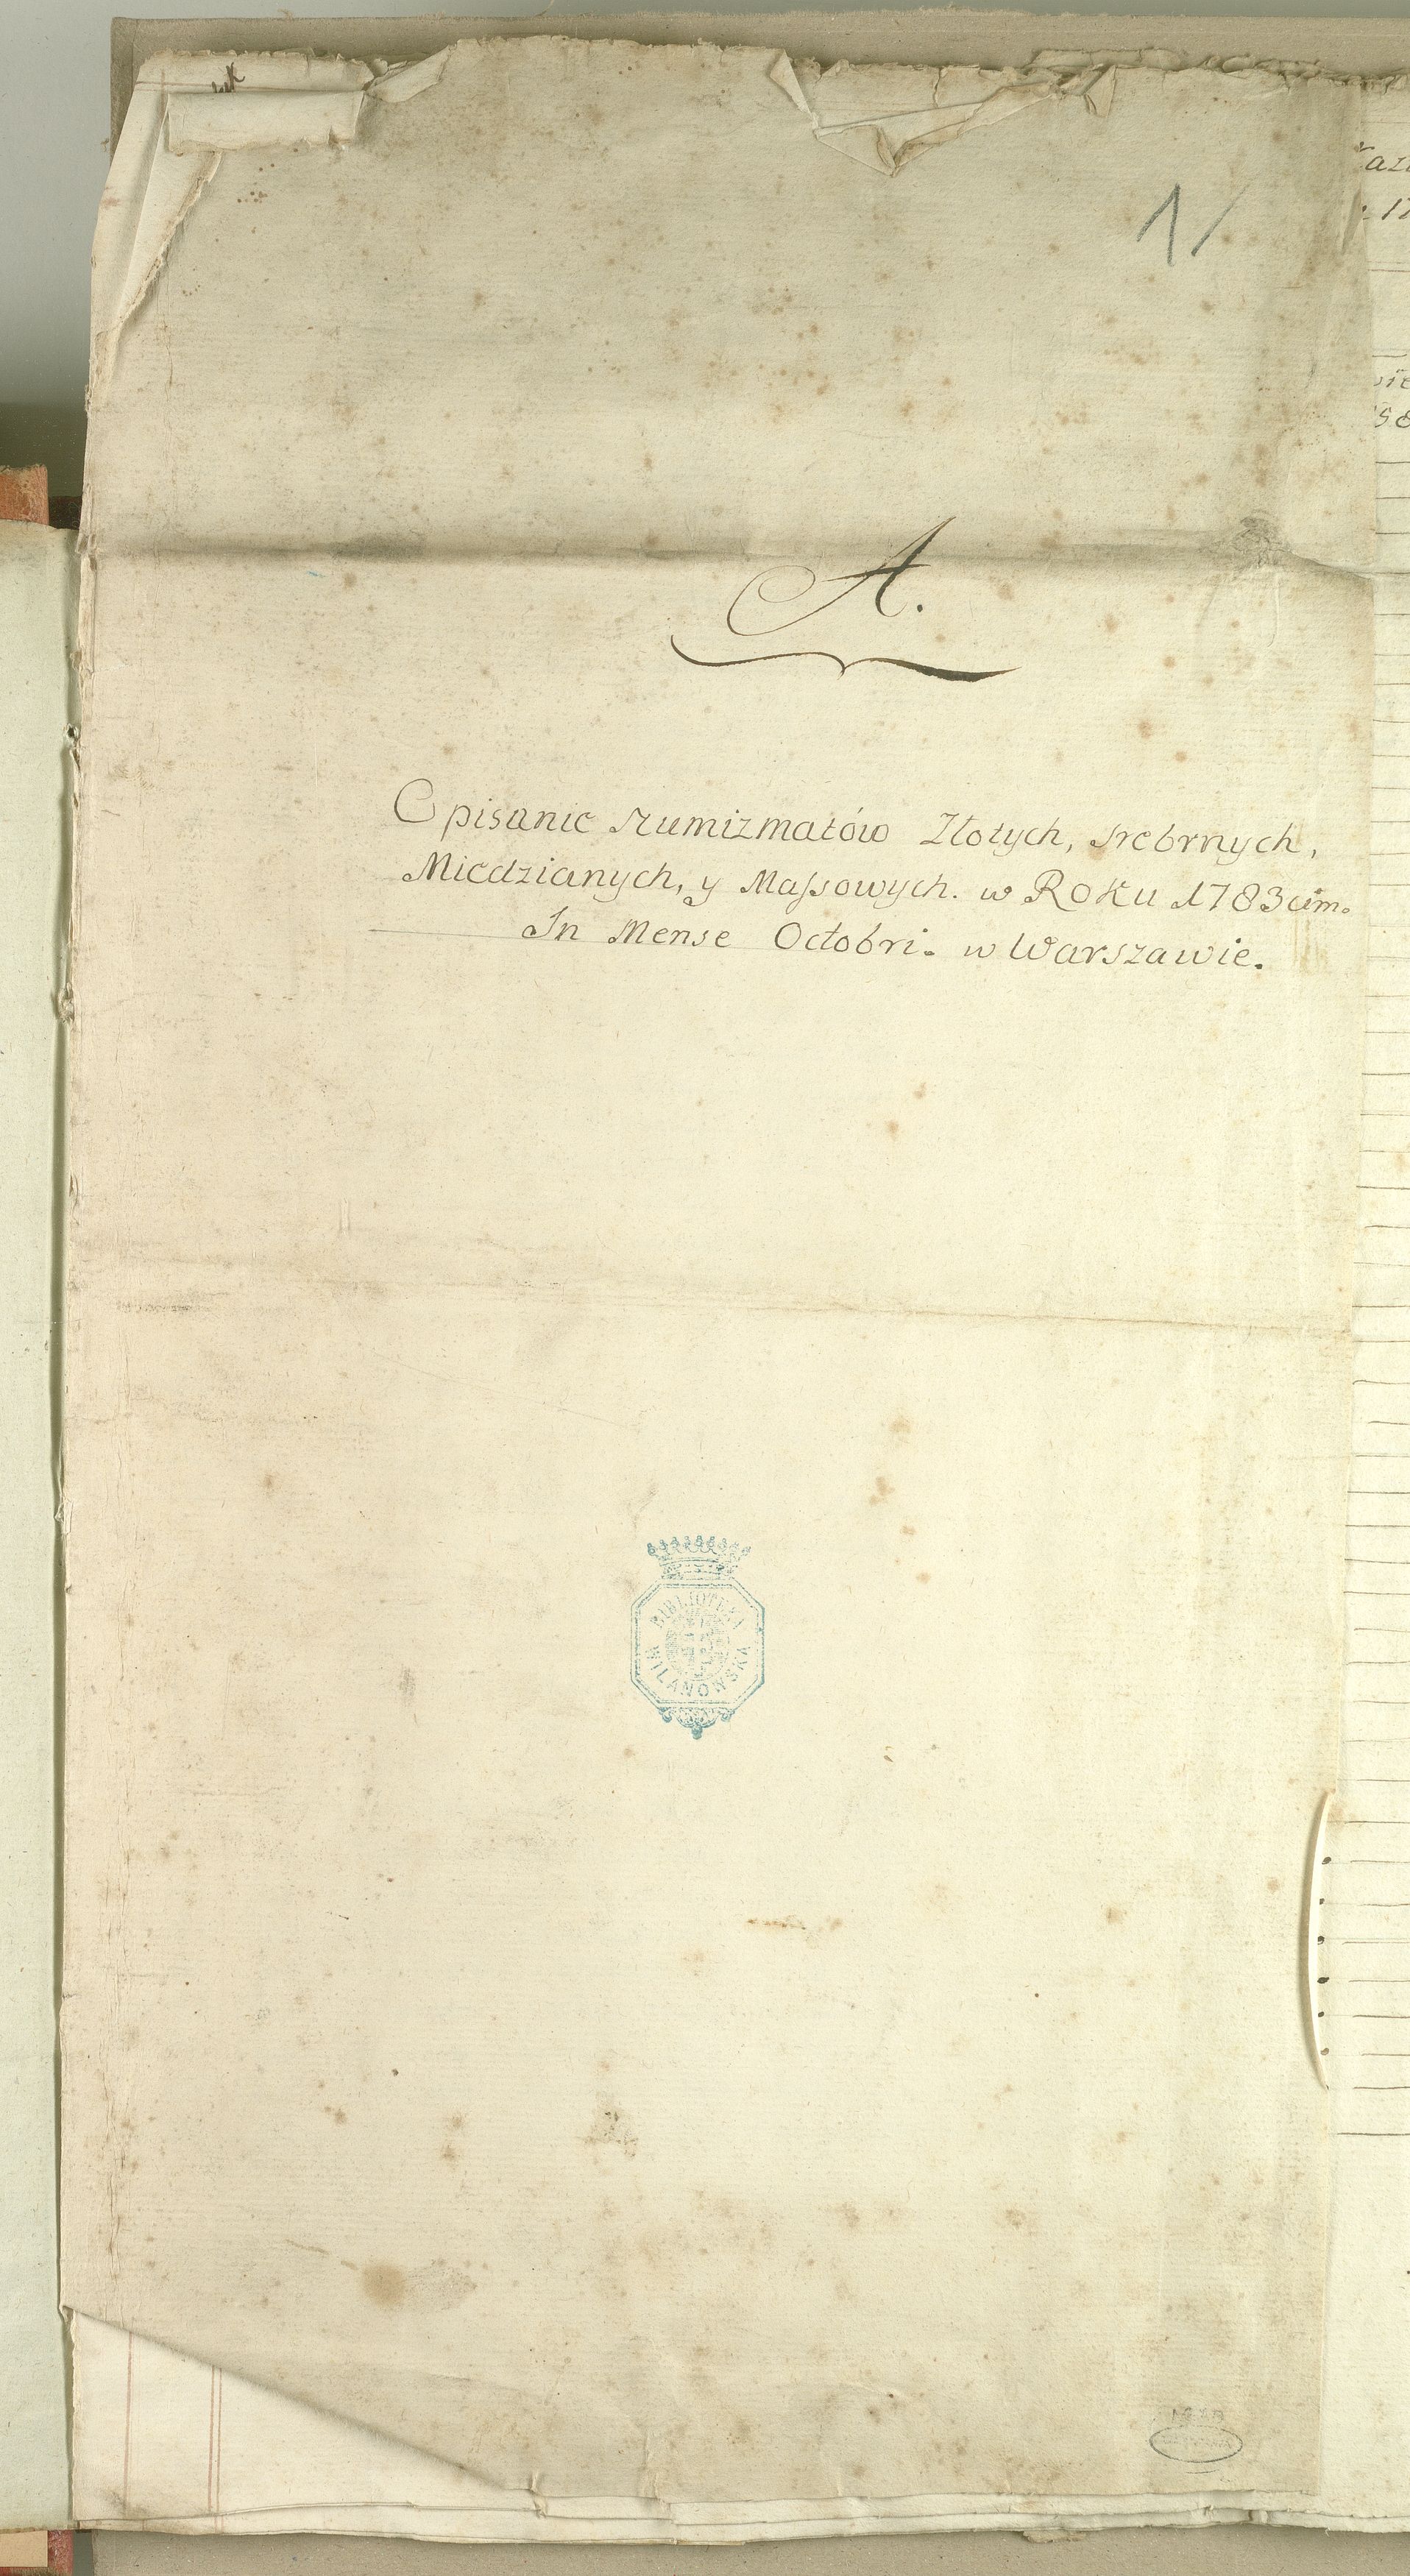 1/
A.
Opisanie Numizmatów Złotych, srebrnych,
Miedzianych, y Massowych. w Roku 1783cim.
In Mense Octobri. w Warszawie.
BIBLIOTEKA
WILANOWSKA